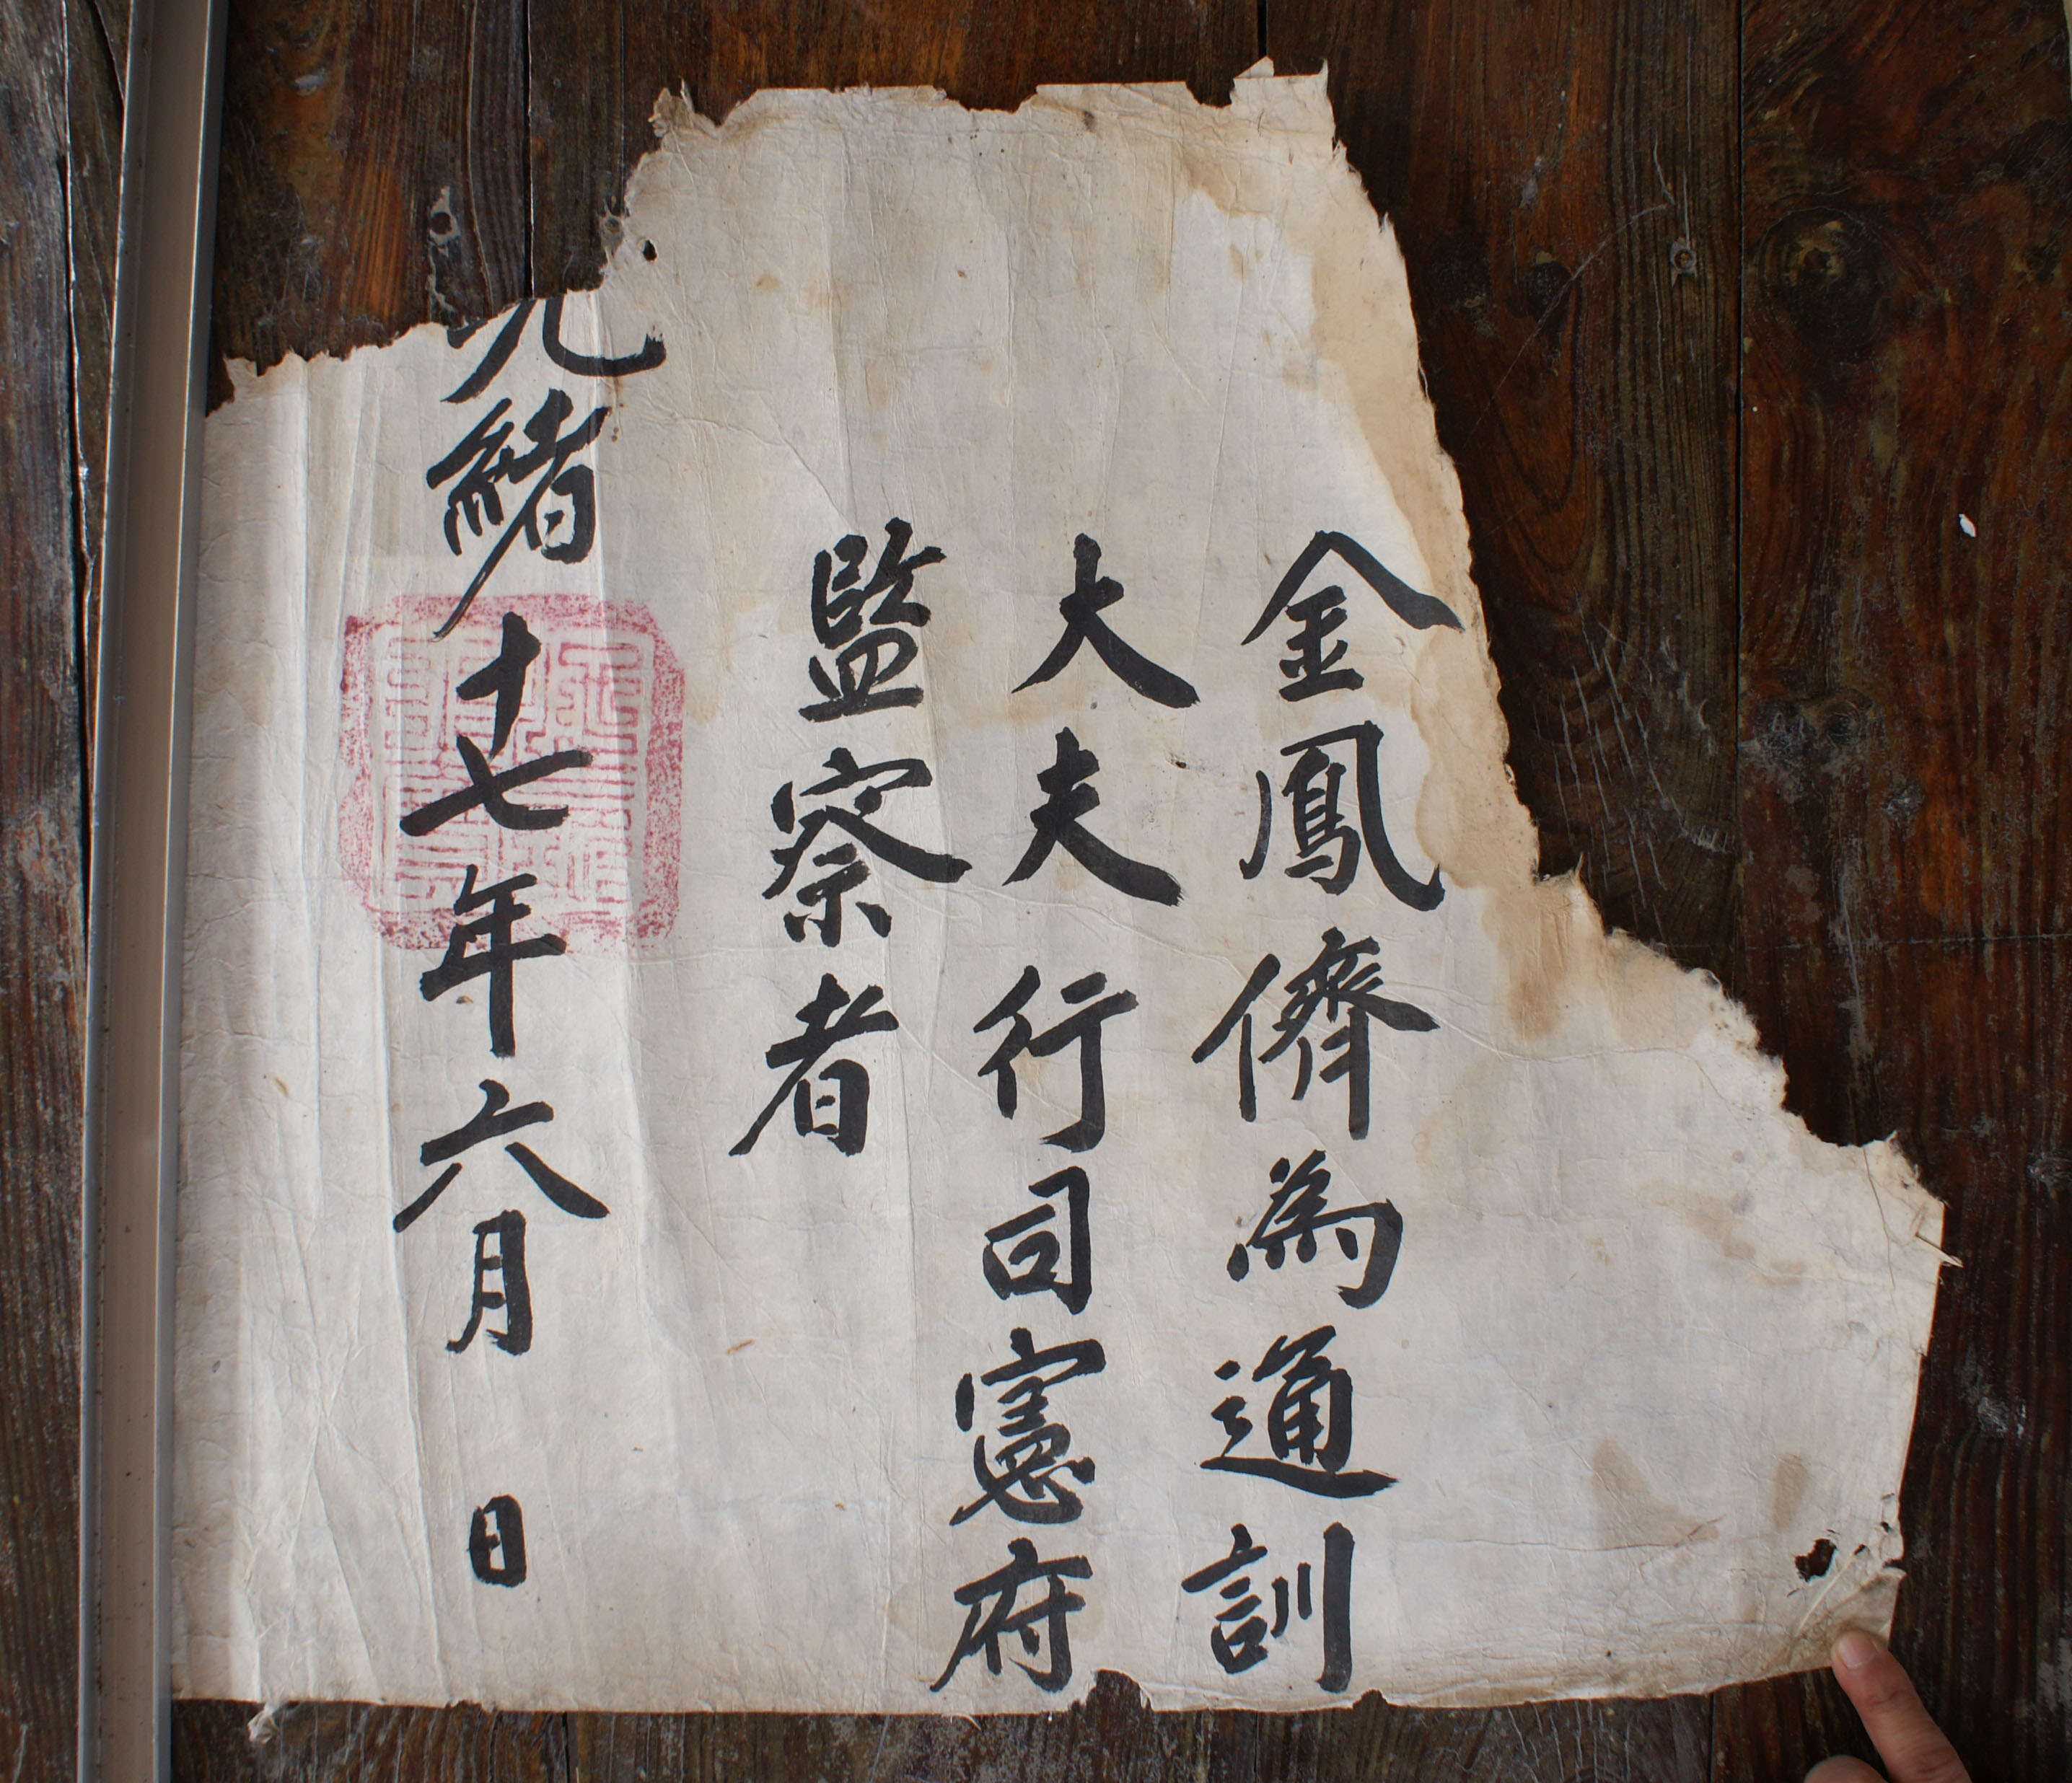 金鳳儕為通訓
大夫行司憲府
監察者
光緒十七年六月 日